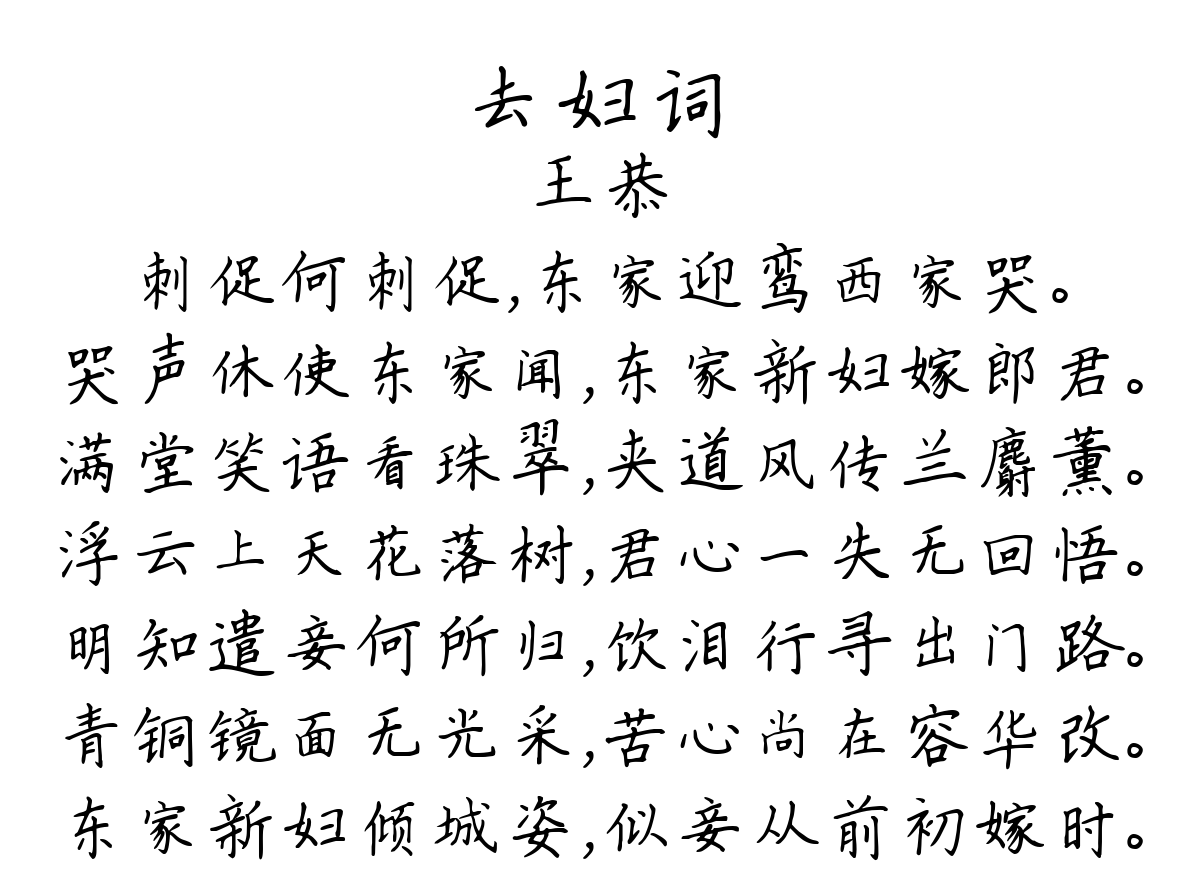 去妇词
王恭
刺促何刺促,东家迎鸾西家哭。
哭声休使东家闻,东家新妇嫁郎君。
满堂笑语看珠翠,夹道风传兰麝薰。
浮云上天花落树,君心一失无回悟。
明知遣妾何所归,饮泪行寻出门路。
青铜镜面无光采,苦心尚在容华改。
东家新妇倾城姿,似妾从前初嫁时。